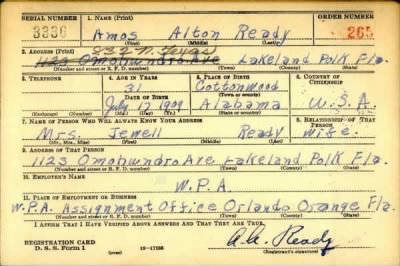 SERIAL NUMBER 1. NAME (Print) ORDER NUMBER
3336 Amos Alton Ready 265
(First) (Middle) (Last)
832 N. Texas
2. ADDRESS (Print)
1123 Omohundro Ave Lakeland Polk Fla.
(Number and street or R. F. D. number) (Town) (County) (State)
3. TELEPHONE 4. AGE IN YEARS 5. PLACE OF BIRTH 6. COUNTRY OF CITIZENSHIP
31 Cottonwood
DATE OF BIRTH (Town or county)
July 17 1909 Alabama U.S.A.
(Exchange) (Number) (Mo.) (Day) (Yr.) (State or country)
7. NAME OF PERSON WHO WILL ALWAYS KNOW YOUR ADDRESS 8. RELATIONSHIP OF THAT PERSON
Mrs. Jewell Ready Wife.
(Mr., Mrs., Miss) (First) (Middle) (Last)
9. ADDRESS OF THAT PERSON
1123 Omohundro Ave Lakeland Polk Fla.
(Number and street or R. F. D. number) (Town) (County) (State)
10. EMPLOYER'S NAME
W.P.A.
11. PLACE OF EMPLOYMENT OR BUSINESS
W.P.A. Assignment Office Orlando Orange Fla.
(Number and street or R. F. D. number) (Town) (County) (State)
I AFFIRM THAT I HAVE VERIFIED ABOVE ANSWERS AND THAT THEY ARE TRUE.
REGISTRATION CARD
D. S. S. Form 1 (over) 16—17105
A.A. Ready
(Registrant's signature)